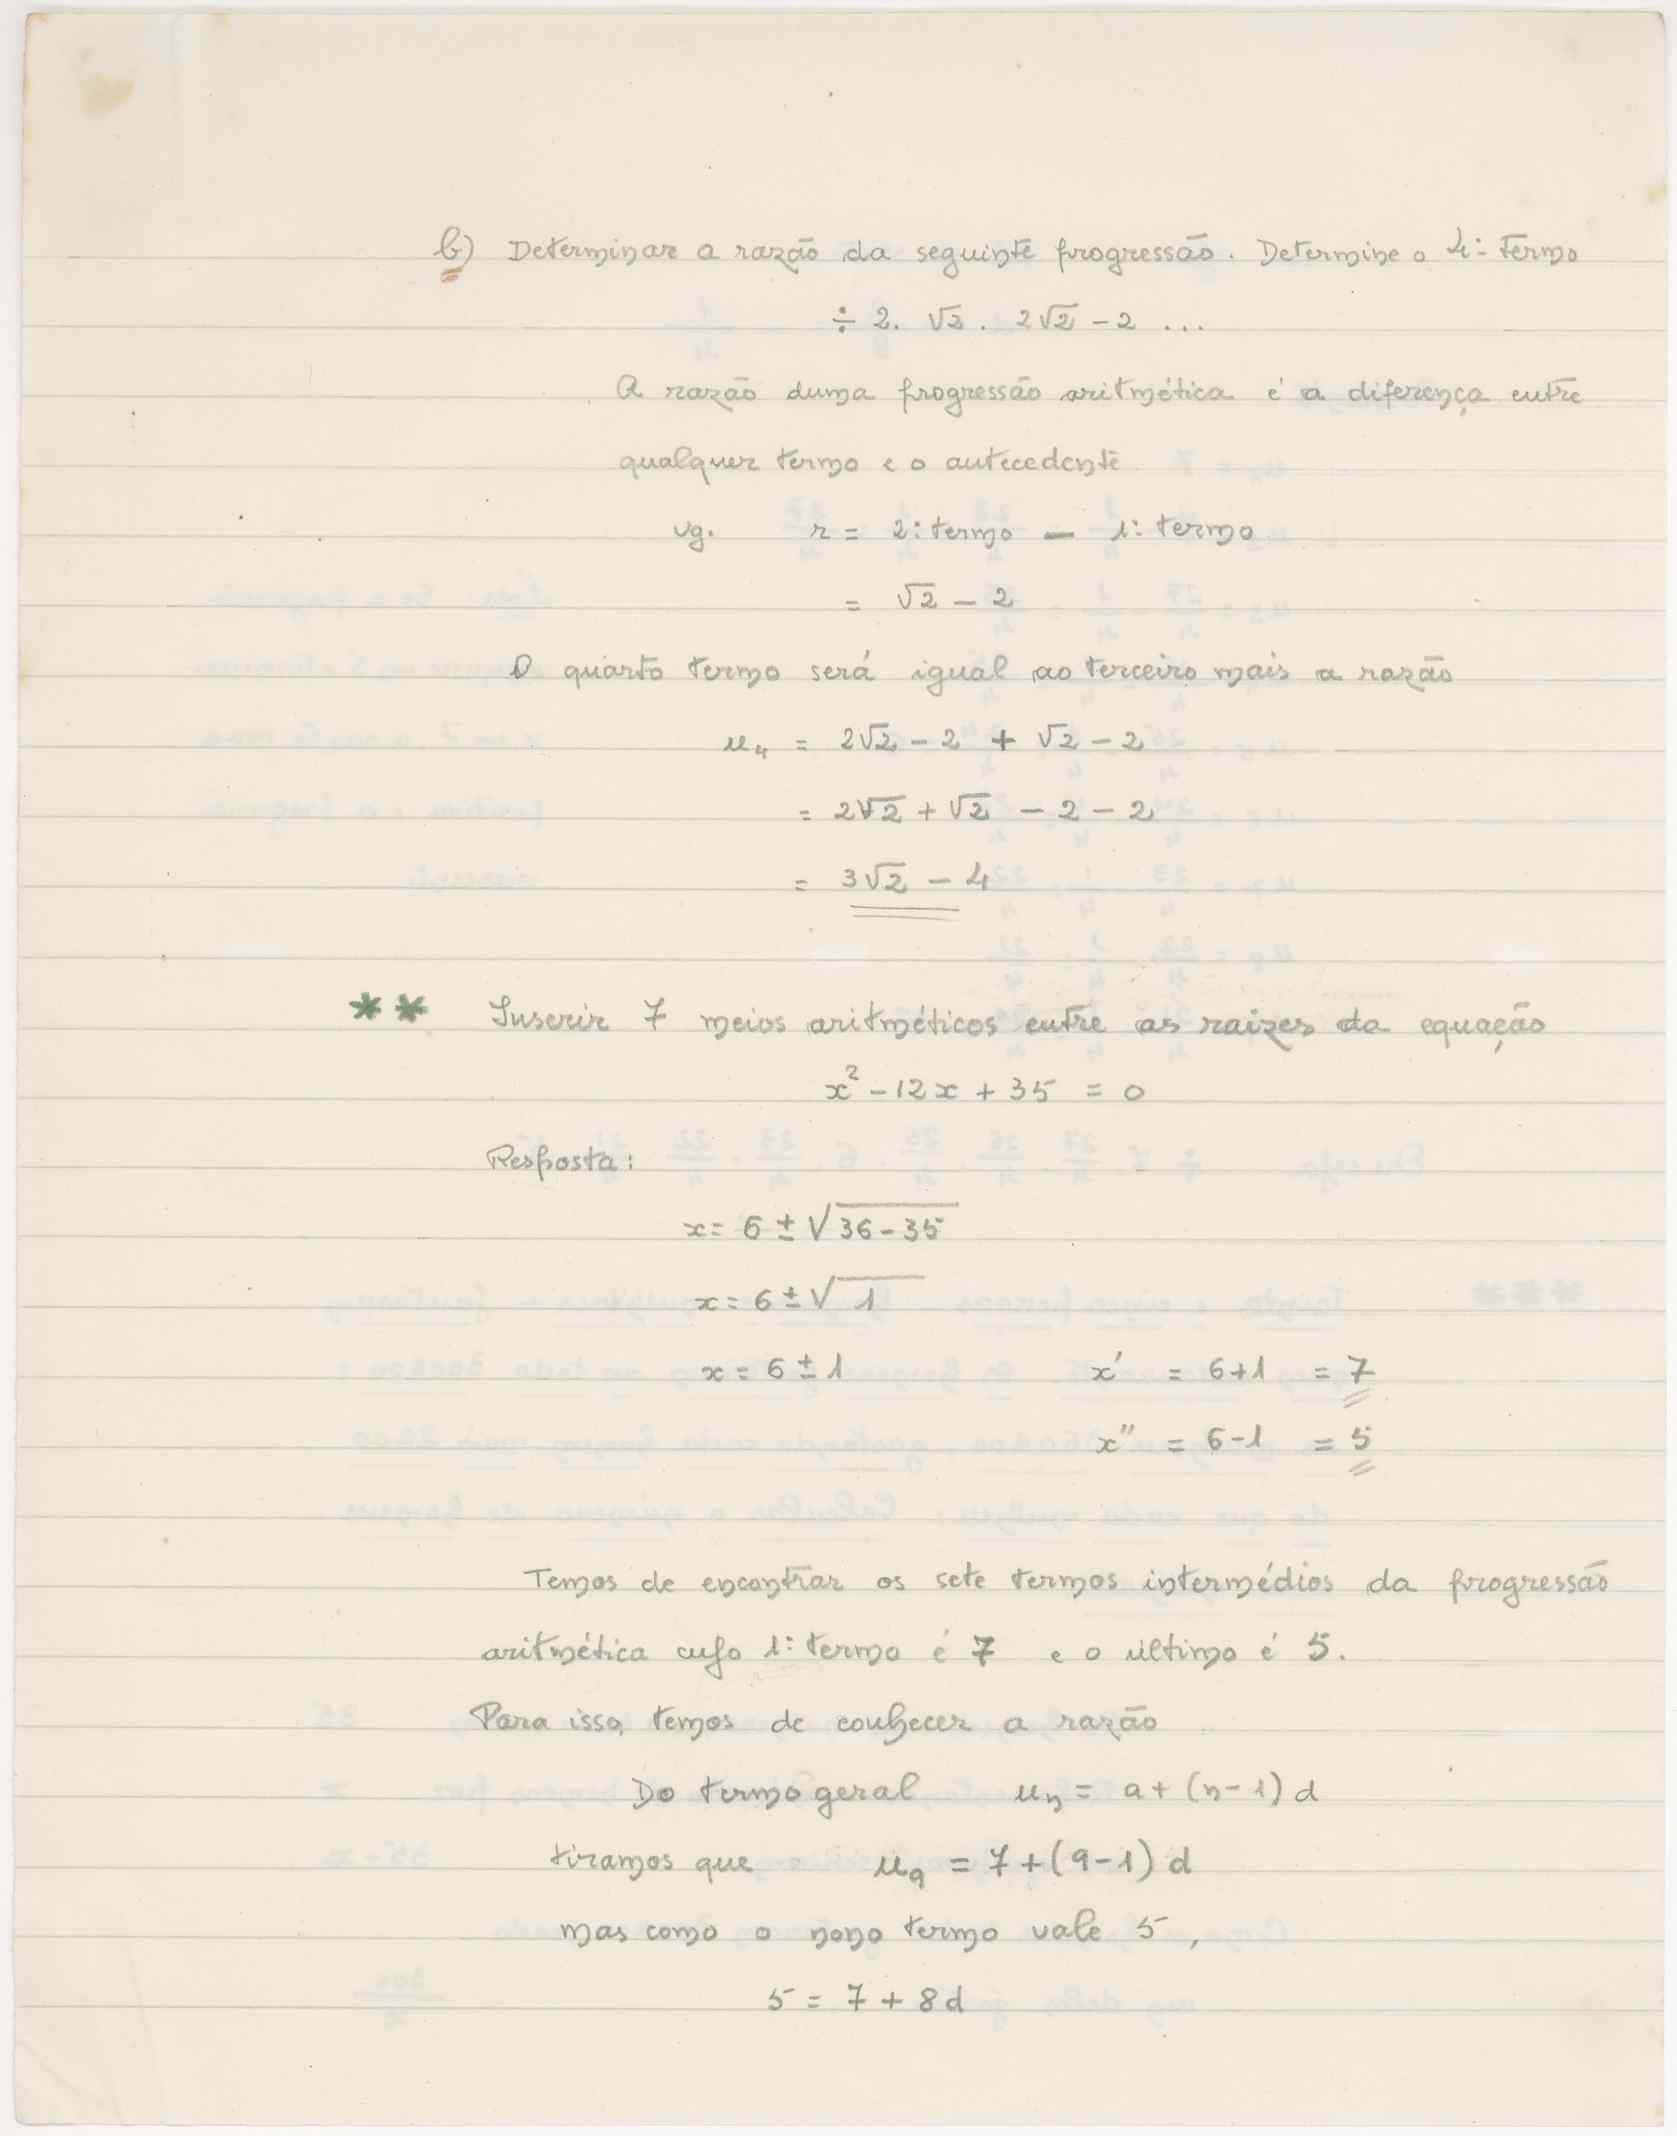 b) Determinar a razão da seguinte progressão. Determine o 4º termo
÷ 2. √2 . 2√2 - 2 ...
A razão duma progressão aritmética é a diferença entre
qualquer termo e o antecedente
vg. r = 2º termo — 1º termo
= √2 - 2
O quarto termo será igual ao terceiro mais a razão
u₄ = 2√2 - 2 + √2 - 2
= 2√2 + √2 - 2 - 2
= 3√2 - 4
** Inserir 7 meios aritméticos entre as raizes da equação
x² - 12x + 35 = 0
Resposta:
x = 6 ± √36-35
x = 6 ± √1
x = 6 ± 1 x' = 6+1 = 7
x" = 6-1 = 5
Temos de encontrar os sete termos intermédios da progressão
aritmética cujo 1º termo é 7 e o último é 5.
Para isso, temos de conhecer a razão
Do termo geral uₙ = a + (n-1) d
tiramos que u₉ = 7 + (9-1) d
mas como o nono termo vale 5,
5 = 7 + 8d